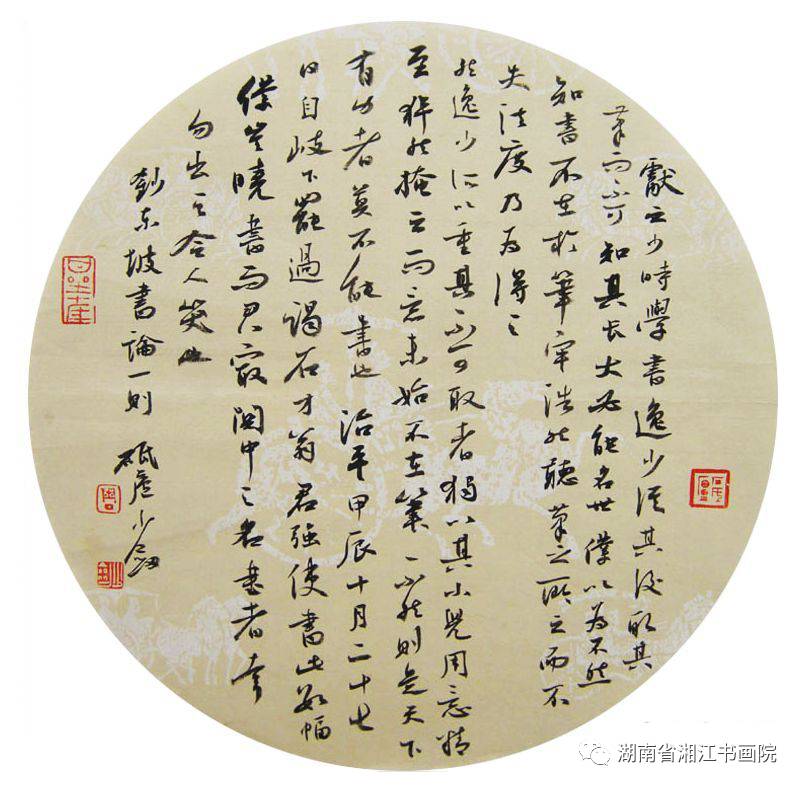 獻之少時學書逸少從其後取其
筆而不可知其長大必能名世僕以為不然
知書不在於筆牢浩然聽筆之所之而不
失法度乃為得之
然逸少所以重其不可取者獨以其小兒用意精
至猝然掩之而意未始不在筆不然則是天下
有力者莫不能書也治平甲辰十月二十七
日自岐下罷過謁石才翁君強使書此數幅
僕豈曉書而君最關中之名書者幸
勿出之令人笑也
東坡書論一則 砥廬少劍
湖南省湘江书画院